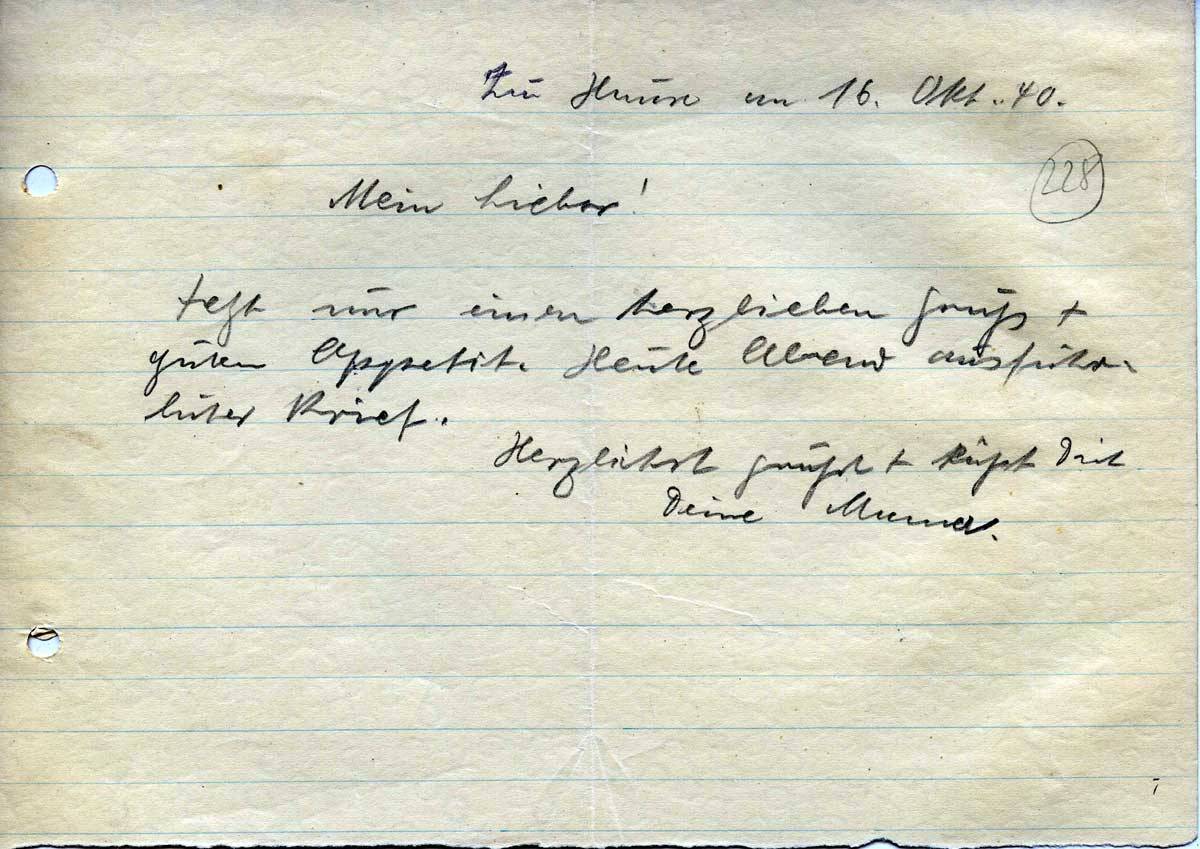 Zu Hause am 16. Okt. 40.
228
Mein Lieber!
Jetzt nur einen herzlieben Gruß +
guten Appetit. Heute Abend ausführ-
licher Brief.
Herzlichst grüßt + küßt Dich
Deine